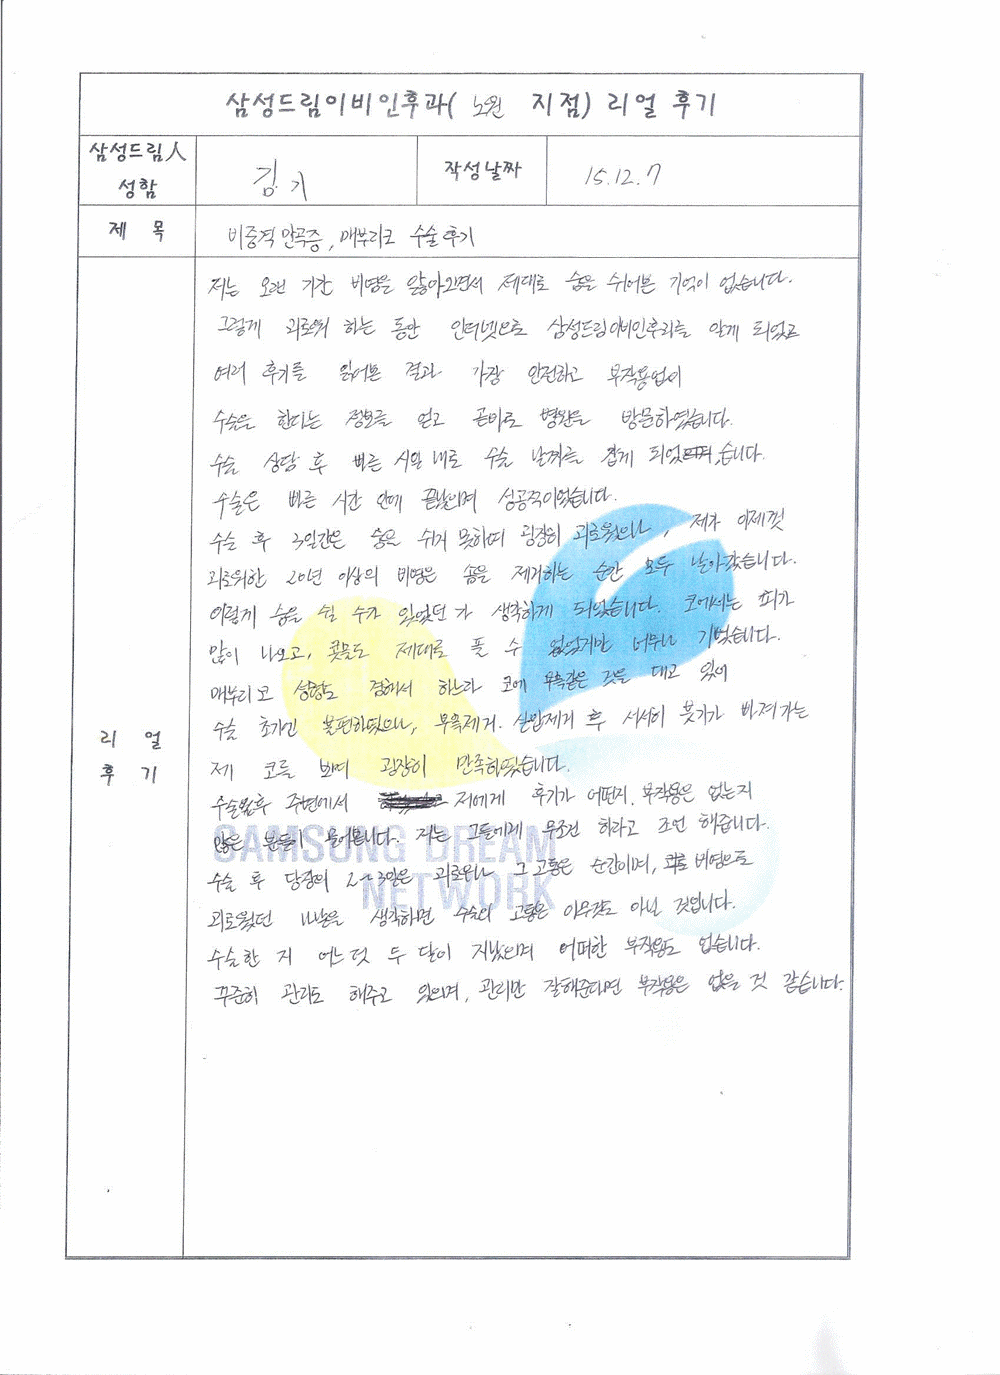 삼성드림이비인후과( 노원 지점) 리얼 후기
삼성드림人
성함
김 기
작성날짜
15.12.7
제 목
비중격 만곡증, 매부리코 수술후기
저는 오랜 기간 비염을 앓아오면서 제대로 숨을 쉬어본 기억이 없습니다.
그렇게 괴로워 하는 동안 인터넷으로 삼성드림이비인후과를 알게 되었고
여러 후기를 읽어본 결과 가장 안전하고 부작용없이
수술을 한다는 정보를 얻고 곧바로 병원을 방문하였습니다.
수술 상담 후 빠른 시일 내로 수술 날짜를 잡게 되었습니다.
수술은 빠른 시간 안에 끝났으며 성공적이었습니다.
수술 후 3일간은 숨을 쉬지 못하며 굉장히 괴로웠으나, 제가 이제껏
괴로워한 20년 이상의 비염은 솜을 제거하는 순간 모두 날아갔습니다.
이렇게 숨을 쉴 수가 있었던가 생각하게 되었습니다. 코에서는 피가
많이 나오고, 콧물도 제대로 풀 수 없었지만 너무나 기뻤습니다.
매부리코 성형도 겸해서 하느라 코에 부목같은 것을 대고 있어
수술 초기엔 불편하였으나, 부목제거. 실밥제거 후 서서히 붓기가 빠져가는
제 코를 보며 굉장히 만족하였습니다.
수술 후 주변에서 저에게 후기가 어떤지, 부작용은 없는지
많은 분들이 물어봅니다. 저는 그들에게 무조건 하라고 조언 해줍니다.
수술 후 당장의 2~3일은 괴로우나 그 고통은 순간이며, 비염으로
괴로웠던 나날을 생각하면 수술의 고통은 아무것도 아닌 것입니다.
수술한 지 어느덧 두 달이 지났으며 어떠한 부작용도 없습니다.
꾸준히 관리도 해주고 있으며, 관리만 잘해준다면 부작용은 없을 것 같습니다.
리 얼
후 기
SAMSUNG DREAM
NETWORK